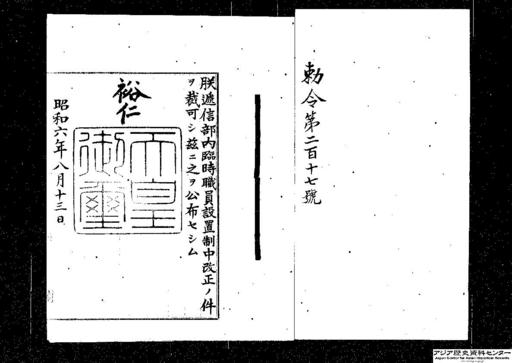 勅令第二百十七號
朕遞信部內臨時職員設置制中改正ノ件
ヲ裁可シ茲ニ之ヲ公布セシム
裕仁
天皇
御璽
昭和六年八月十三日
アジア歴史資料センター
Japan Center for Asian Historical Records